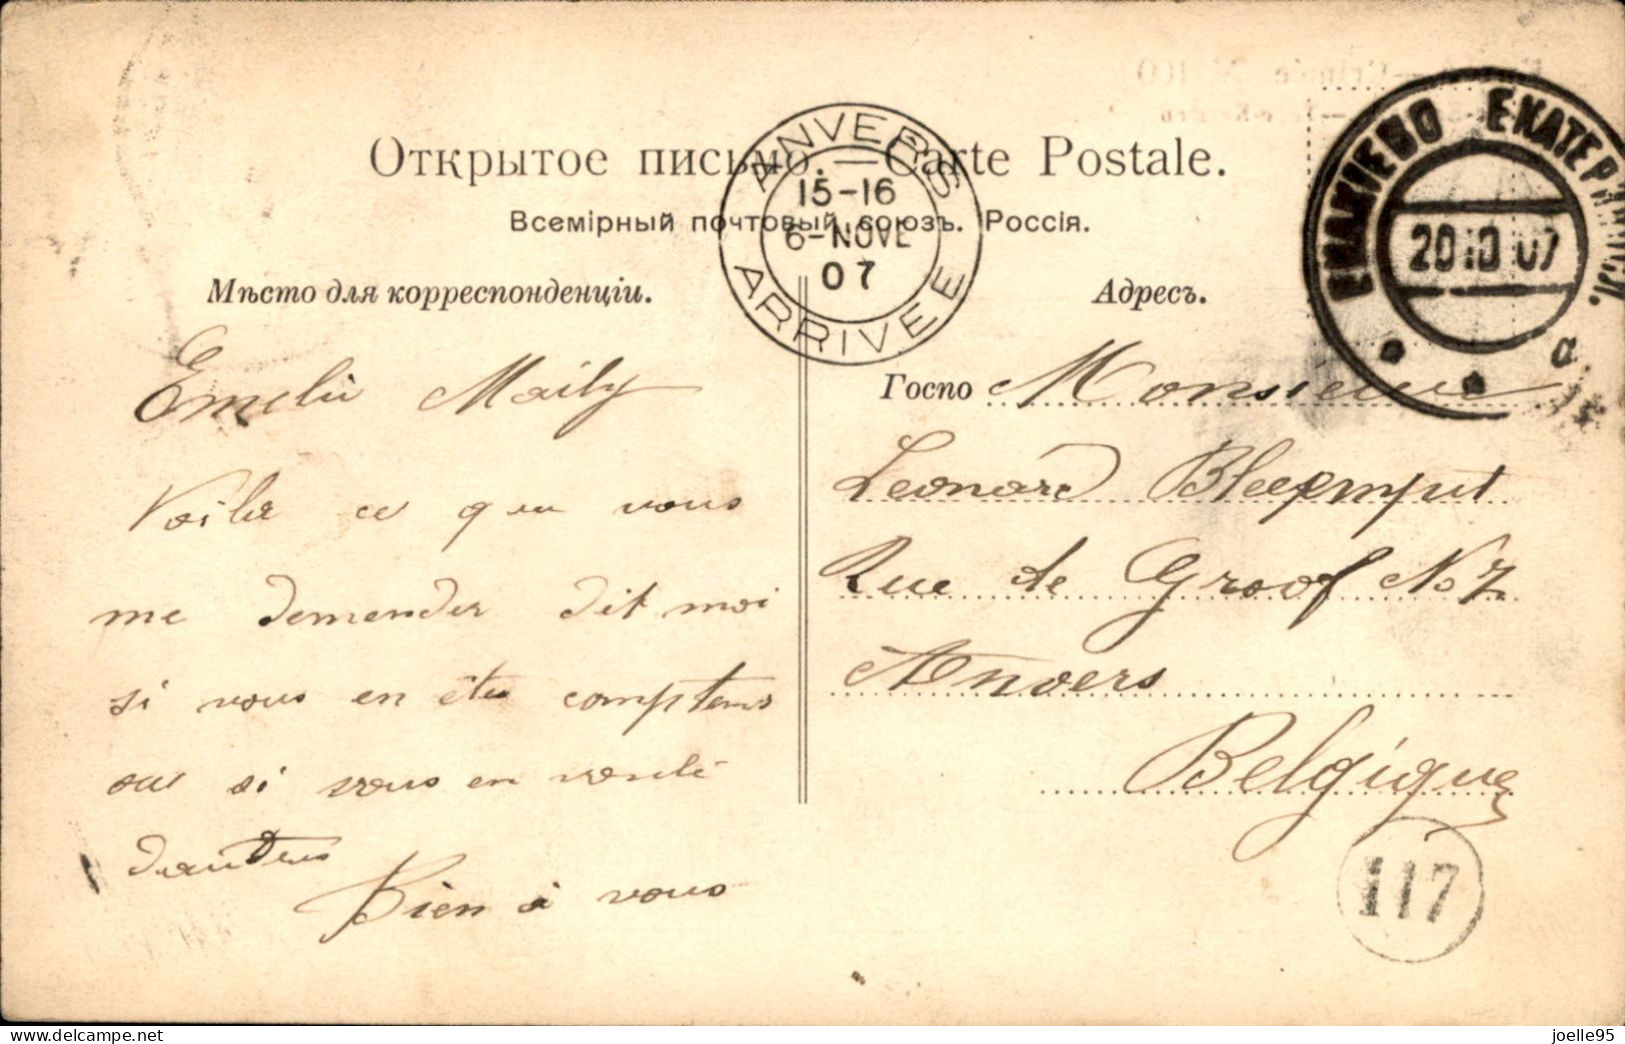 Открытое письмо. — Carte Postale.
Всемірный почтовый союзъ. Россія.
ANVERS
15-16
6-NOVE
07
ARRIVEE
ЕНАКІЕВО ЕКАТЕРИНОСЛ.
20 10 07
а
Мѣсто для корреспонденціи.
Адресъ.
Emelie Maily
Voila ce que vous
me demender dit moi
si vous en êtes comptens
ou si vous en voulé
Bien à vous
Госпо Monsieur
Leonard Bleexmput
Rue de Groof No 7
Anvers
Belgique
117
joelle95